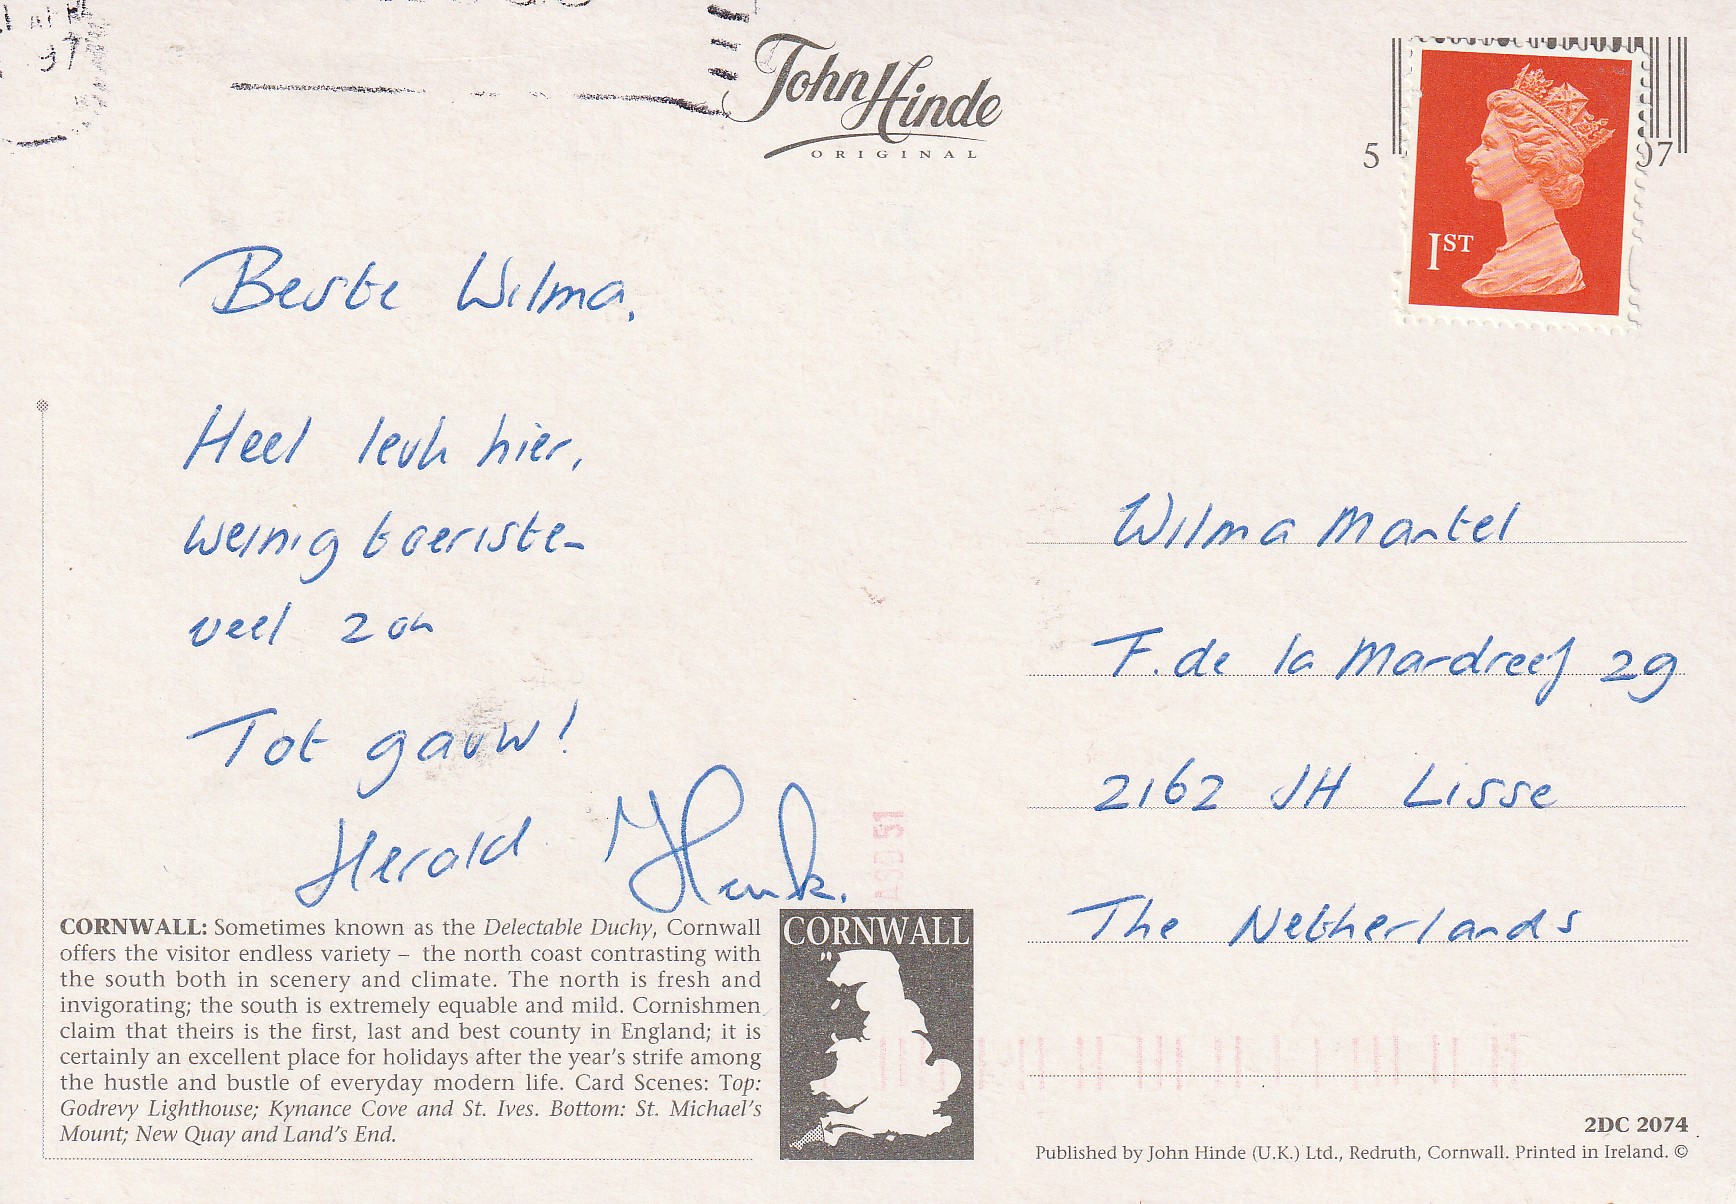 97
John Hinde
ORIGINAL
5
97
1ST
Beste Wilma,
Heel leuk hier,
weinig toeriste-
veel zon
Tot gauw!
Herald Henk.
Wilma Mantel
F. de la Mardreef 29
2162 JH Lisse
The Netherlands
CORNWALL: Sometimes known as the Delectable Duchy, Cornwall
offers the visitor endless variety – the north coast contrasting with
the south both in scenery and climate. The north is fresh and
invigorating; the south is extremely equable and mild. Cornishmen
claim that theirs is the first, last and best county in England; it is
certainly an excellent place for holidays after the year's strife among
the hustle and bustle of everyday modern life. Card Scenes: Top:
Godrevy Lighthouse; Kynance Cove and St. Ives. Bottom: St. Michael's
Mount; New Quay and Land's End.
CORNWALL
2DC 2074
Published by John Hinde (U.K.) Ltd., Redruth, Cornwall. Printed in Ireland. ©